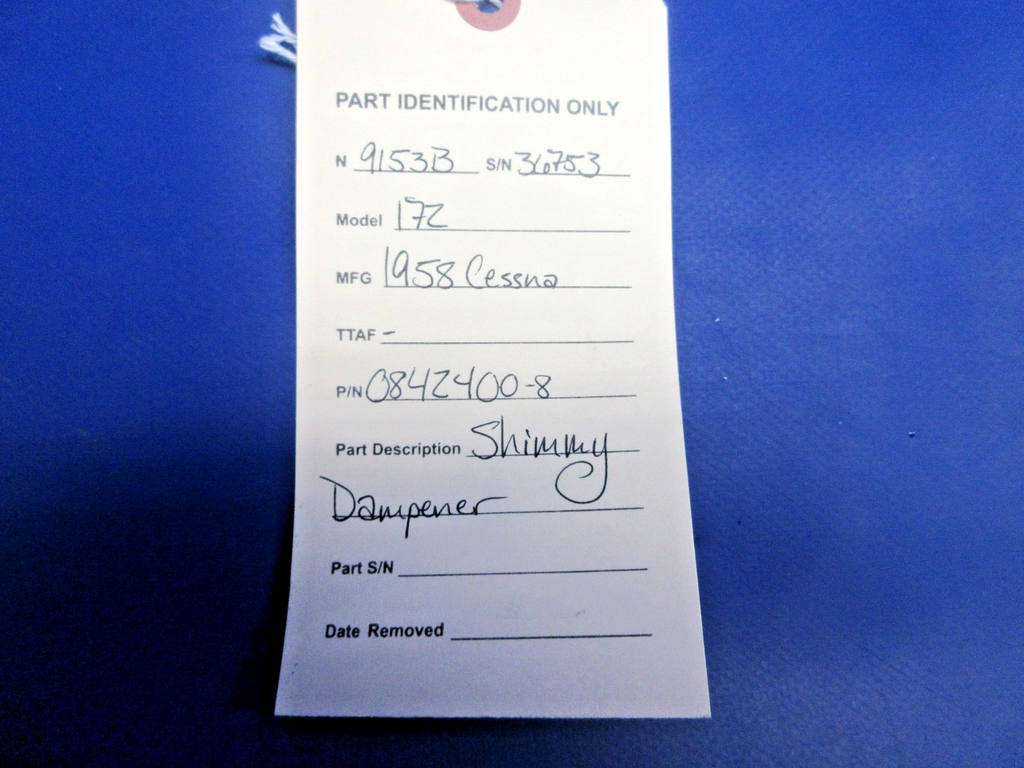 PART IDENTIFICATION ONLY
N 9153B S/N 36753
Model 172
MFG 1958 Cessna
TTAF -
P/N 0842400-8
Part Description Shimmy
Dampener
Part S/N
Date Removed